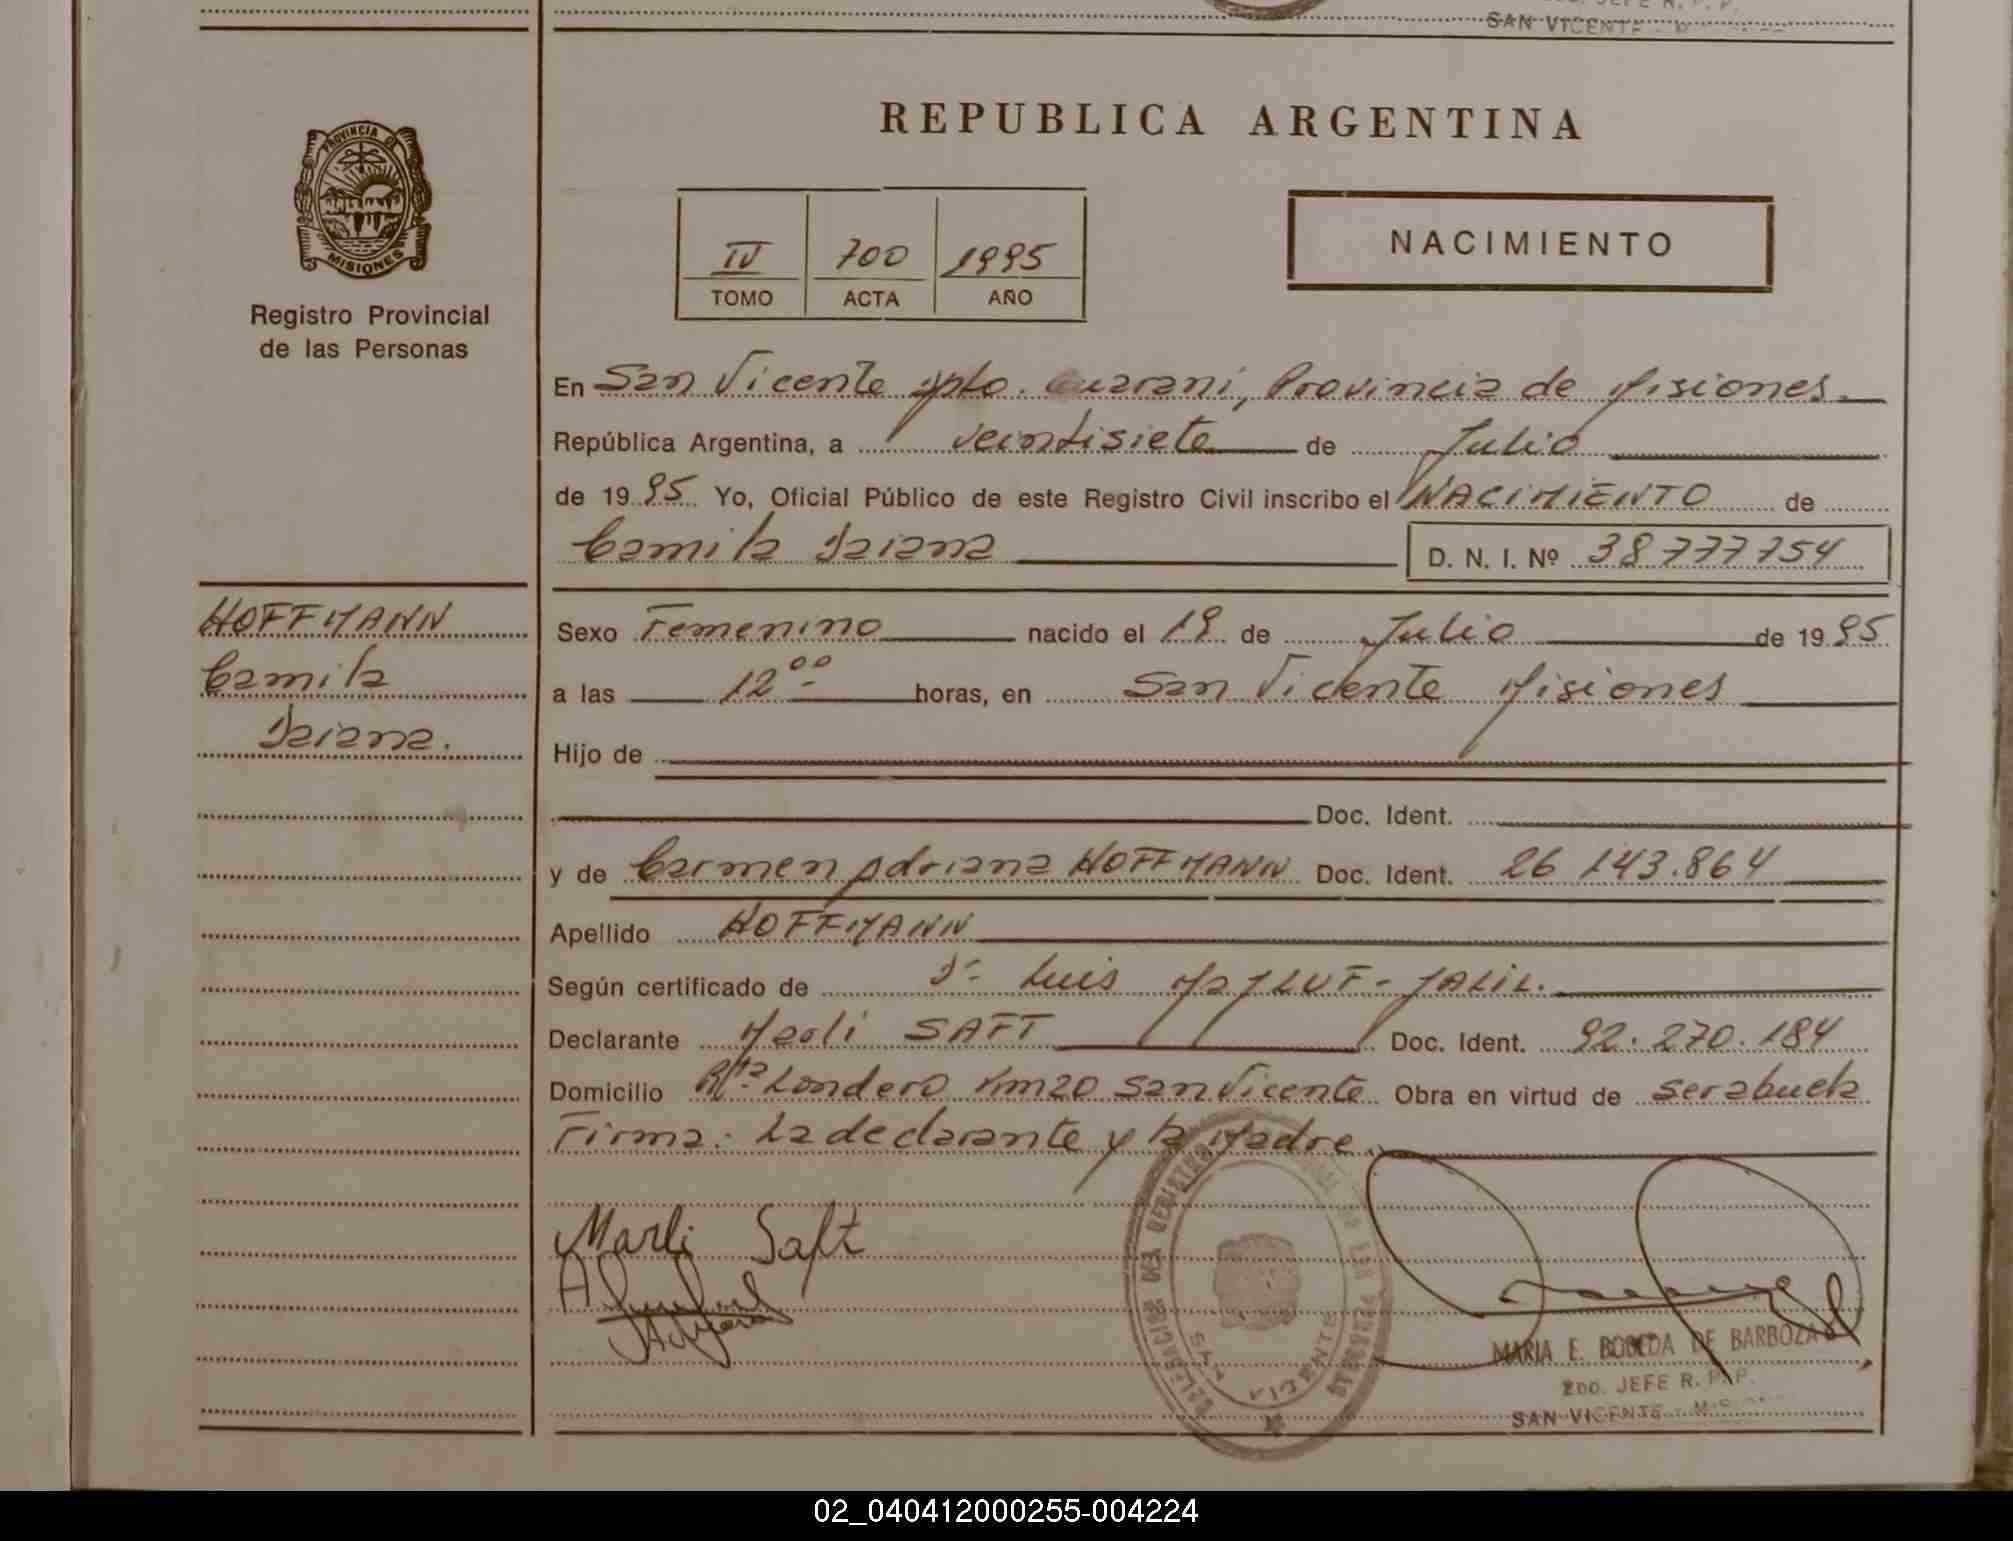 SAN VICENTE
REPUBLICA ARGENTINA
PROVINCIA DE
MISIONES
Registro Provincial
de las Personas
IV 700 1995
TOMO ACTA AÑO
NACIMIENTO
En San Vicente Dpto. Guarani, Provincia de Misiones.
República Argentina, a veintisiete de Julio
de 1995 Yo, Oficial Público de este Registro Civil inscribo el NACIMIENTO de
Camila Daiana D. N. I. Nº 38777754
HOFFMANN
Camila
Daiana.
Sexo Femenino nacido el 19 de Julio de 1995
a las 12 ºº horas, en San Vicente Misiones
Hijo de
Doc. Ident.
y de Carmen Adriana HOFFMANN Doc. Ident. 26 143.864
Apellido HOFFMANN
Según certificado de Dr. Luis MAJLUF-JALIL.
Declarante Marli SAFT Doc. Ident. 92.270.184
Domicilio Londero Km20 San Vicente Obra en virtud de ser abuela
Firma: La declarante y la Madre.
Marli Saft
MARIA E. BOBEDA DE BARBOZA
2DO. JEFE R. P. P.
SAN VICENTE - MIS
02_040412000255-004224